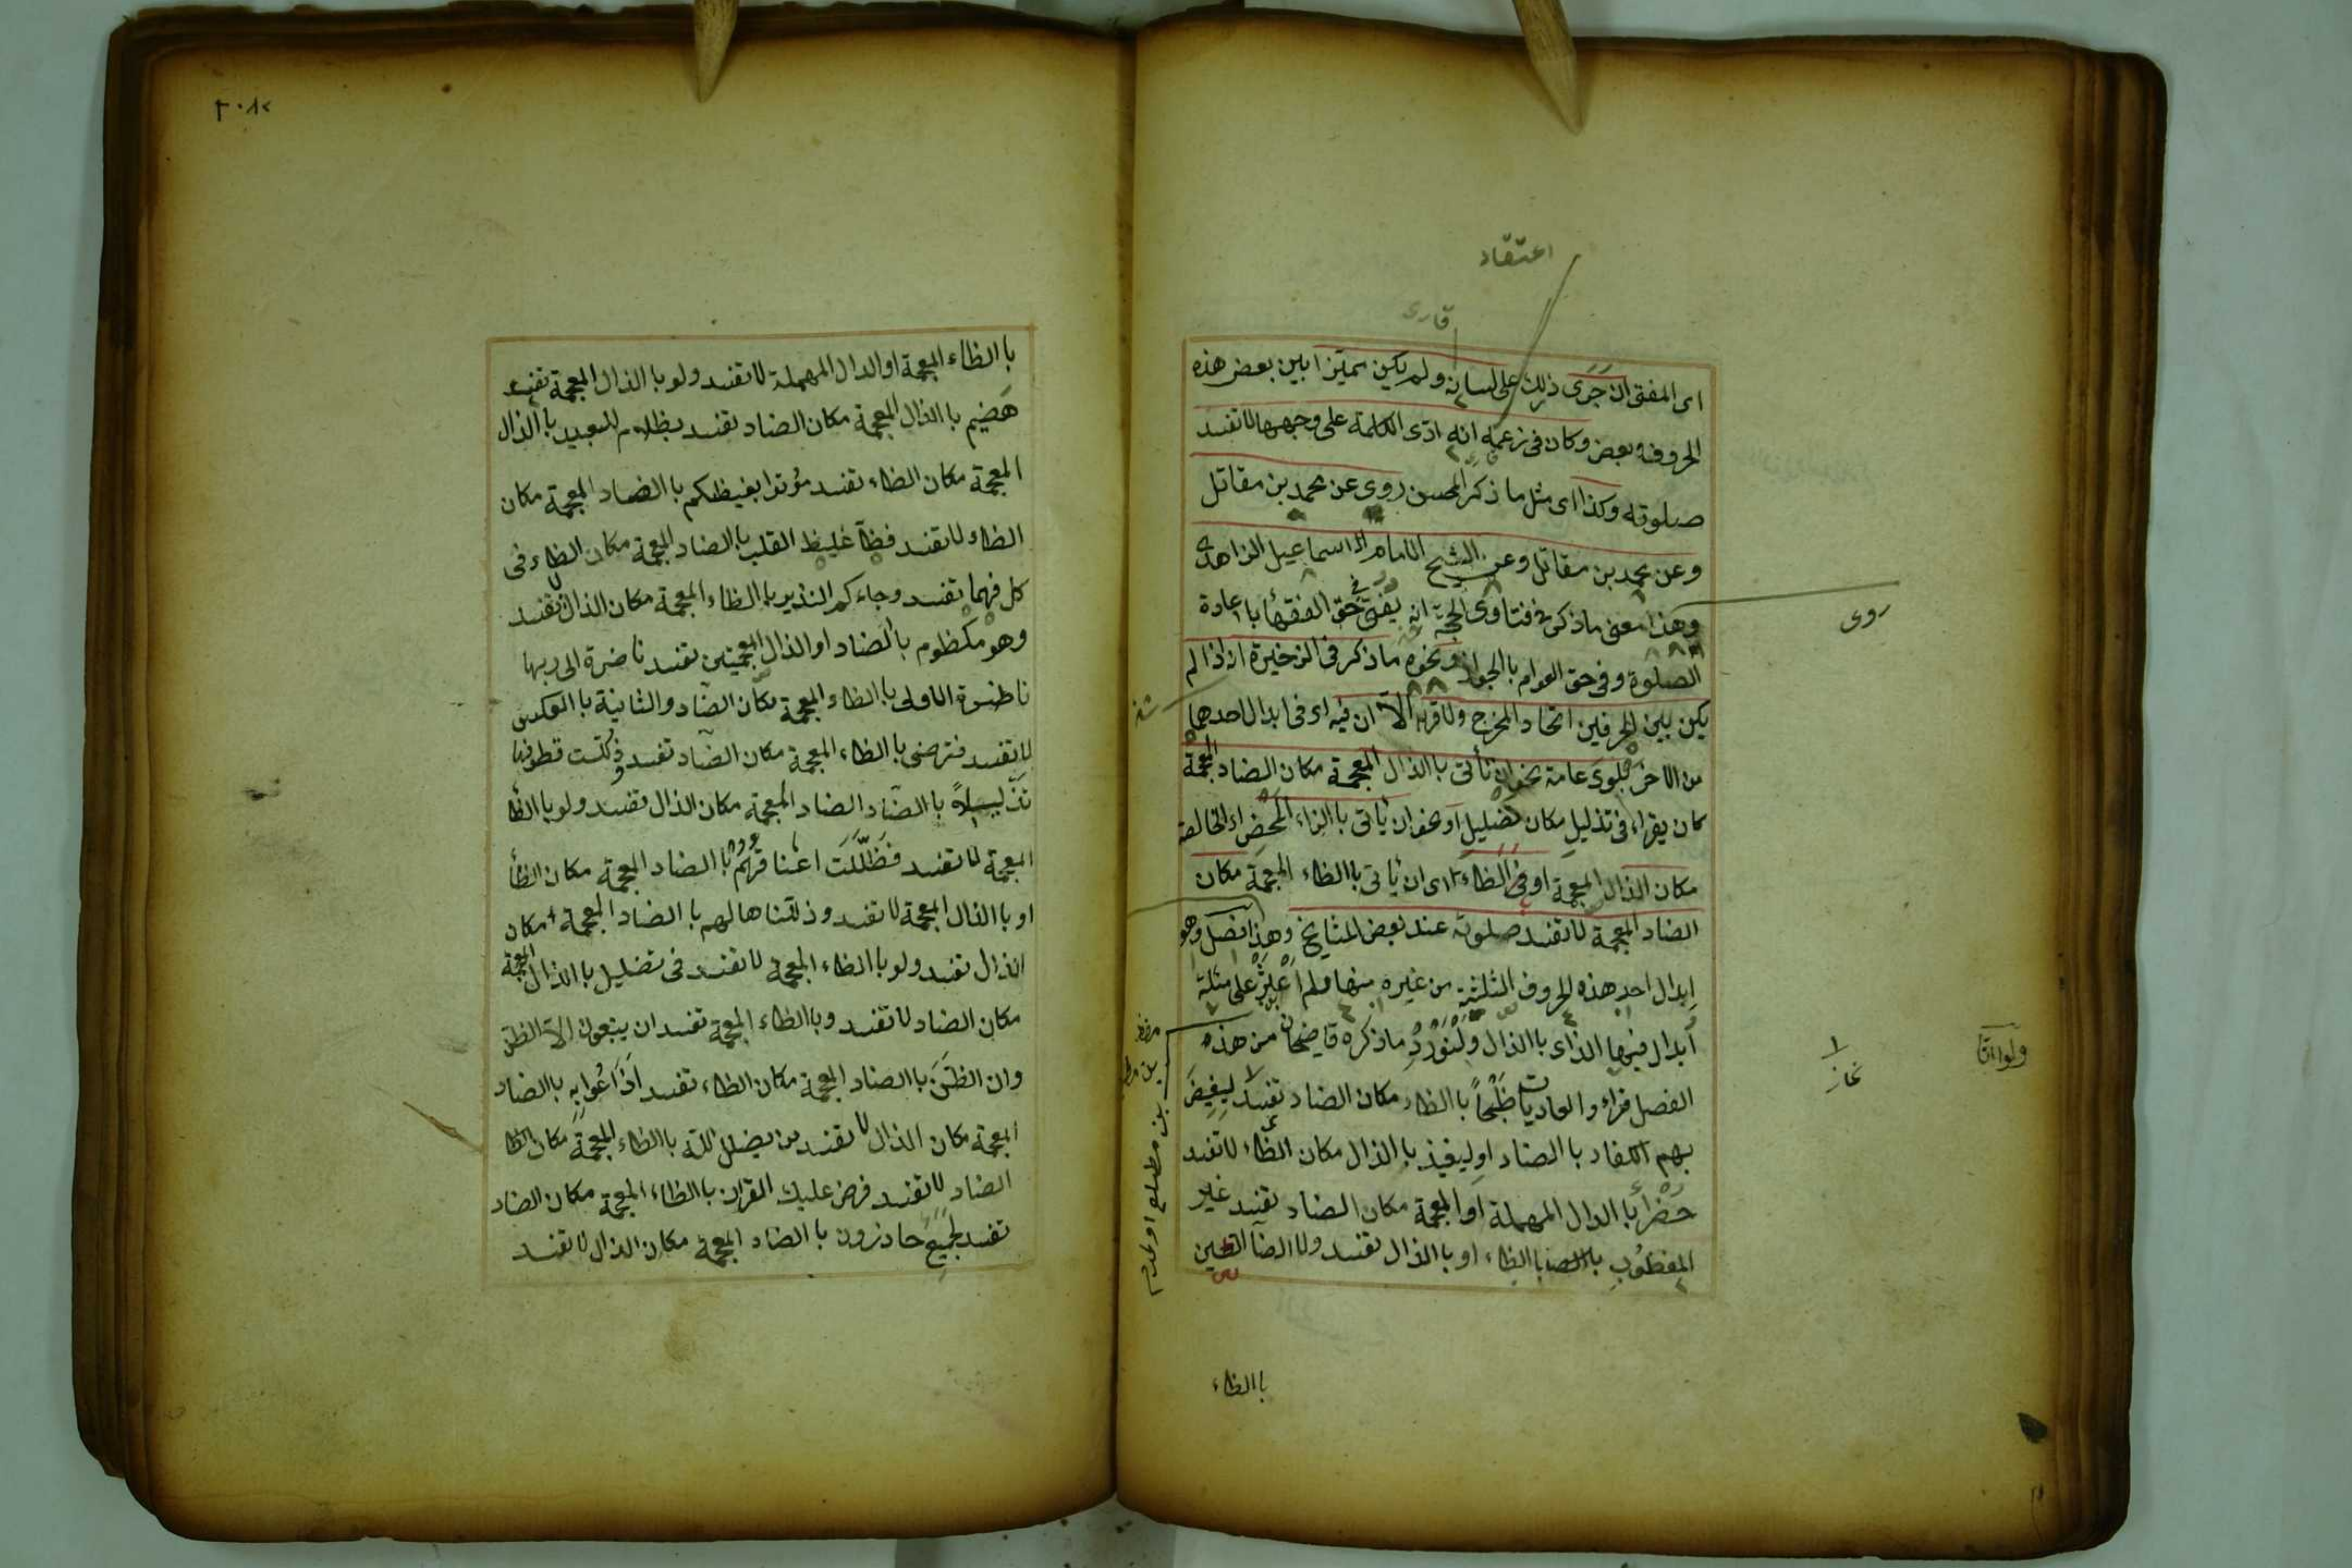 اعتقاد
قارى
اى المفتى ان جَرَى ذلك على لسانه ولم يكن مميّزا بين بعض هذه
الحروف وبعض وكان فى زعمه انه ادّى الكلمة على وجهها لا تفسد
صلوته وكذا اى مثل ما ذكر المحسن روى عن محمد بن مقاتل
وعن محمد بن مقاتل وعن الشيخ الامام اسماعيل الزاهدى
وهذا معنى ما ذكر فى فتاوى الحجّة انه يُفتى فى حق الفقهاء با اعادة
روى
الصلوة وفى حق العوام با الجواز ونحوه ما ذكر فى الذخيرة ان اذا لم
يكن بين الحرفين اتحاد المخرج ولا قربه الاّ ان فيه اى فى ابدال احدهما
من الاخر بلوى عامة نحو ان تأتى با الذال المعجمة مكان الضاد المعجمة
كان يقراء فى تذليل مكان تضليل او نحو ان ياتى با الزاء المحض اى الخالصة
مكان الذال المعجمة او فى الظاء اى ان ياتى با الظاء المعجمة مكان
الضاد المعجمة لا تفسد صلوته عند بعض المشايخ وهذا فصل وهو
ابدال احد هذه الحروف الثلثة من غيره منها ولم
ابدال فيها الذاى با الذال ولنورد ما ذكره قاضيخان من هذه
الفصل قراء والعاديات ظبحًا با الظاء مكان الضاد تفسد ليغيض
بهم الكفار با الضاد او ليغيذ با الذال مكان الظاء لا تفسد
خضرًا با الدال المهملة او المعجمة مكان الضاد تفسد غير
المغظوب با الظاء او با الذال تفسد ولا الضآلين
با الظاء
با الظاء المعجمة او الدال المهملة لا تفسد ولو با الذال المعجمة تفسد
هَضيم با الذال المعجمة مكان الضاد تفسد بظلام للعبيد با الذال
المعجمة مكان الظاء تفسد موتوا بغيظكم با الضاد المعجمة مكان
الظاء لا تفسد فظّا غليظ القلب با الضاد المعجمة مكان الظاء فى
كل فهما تفسد وجاءكم النذير با الظاء المعجمة مكان الذال تفسد
وهو مكظوم با الضاد او الذال المعجمتين تفسد ناضرة الى ربها
ناظرة الاولى با الظاء المعجمة مكان الضاد والثانية با العكس
لا تفسد فترضى با الظاء المعجمة مكان الضاد تفسد وذُلّلت قطوفها
تذليلاً با الضاد الضاد المعجمة مكان الذال تفسد ولو با الظا
المعجمة لا تفسد فَظَلّت اعناقهم با الضاد المعجمة مكان الظأ
او با الذال المعجمة لا تفسد وذللناها لهم با الضاد المعجمة مكان
الذال تفسد ولو با الظاء المعجمة لا تفسد فى تضليل با الذال المعجمة
مكان الضاد لا تفسد وبا الظاء المعجمة تفسد ان يتبعون الاّ الظن
وان الظنّ با الضاد المعجمة مكان الظاء تفسد اذَاعُوا به با الضاد
المعجمة مكان الذال لا تفسد من يضلل للّه با الظاء المعجمة مكان الظا
الضاد لا تفسد فرض عليك القران با الظاء المعجمة مكان الضاد
تفسد لجميع حاذرون با الضاد المعجمة مكان الذال لا تفسد